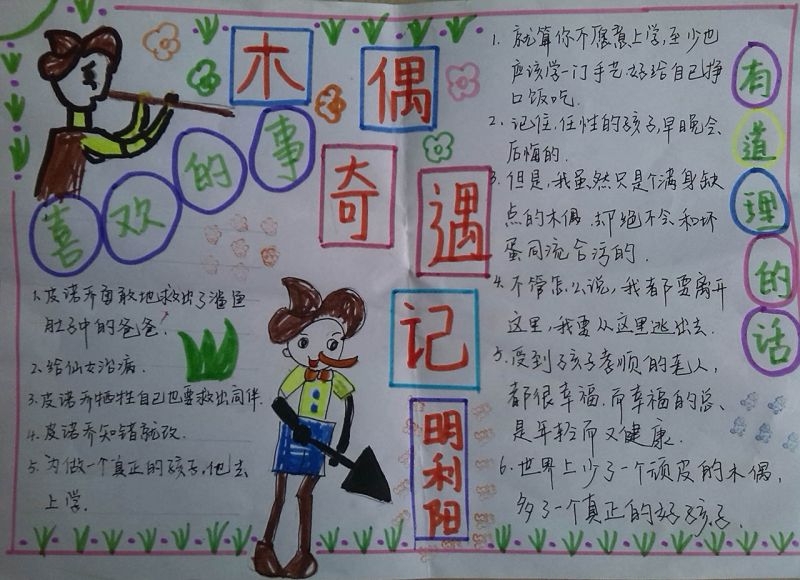 木偶奇遇记
明利阳
喜欢的事
1.皮诺乔勇敢地救出了鲨鱼
肚子中的爸爸!
2.给仙女治病.
3.皮诺乔牺牲自己也要救出同伴.
4.皮诺乔知错就改.
5.为做一个真正的孩子,他去
上学.
有道理的话
1.就算你不愿意上学,至少也
应该学一门手艺.好给自己挣
口饭吃.
2.记住,任性的孩子,早晚会
后悔的.
3.但是,我虽然只是个满身缺
点的木偶.却绝不会和坏
蛋同流合污的.
4.不管怎么说,我都要离开
这里,我要从这里逃出去.
5.受到孩子孝顺的老人,
都很幸福.而幸福的总
是年轻而又健康.
6.世界上少了一个顽皮的木偶,
多了一个真正的好孩子.